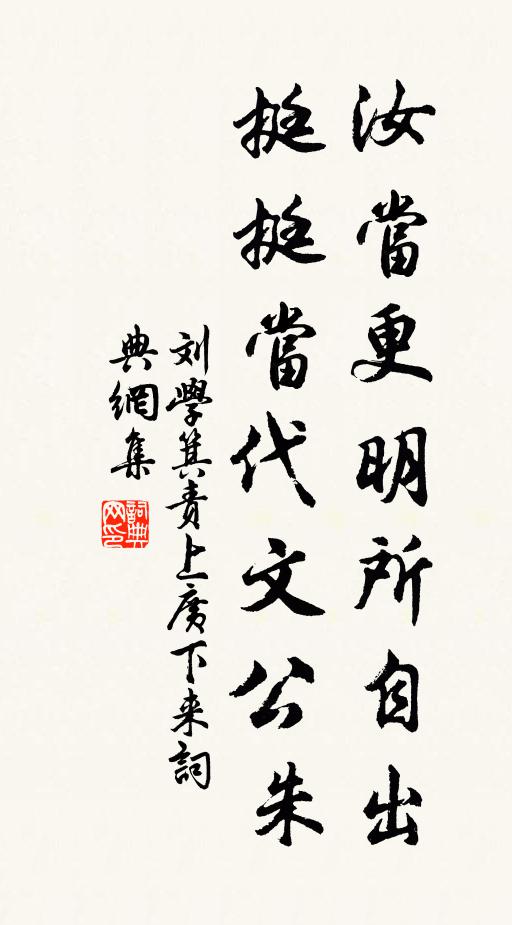 汝當更明所自出
挺挺當代文公朱
刘學箕責上廣下来詞
典網集
詞典
网印